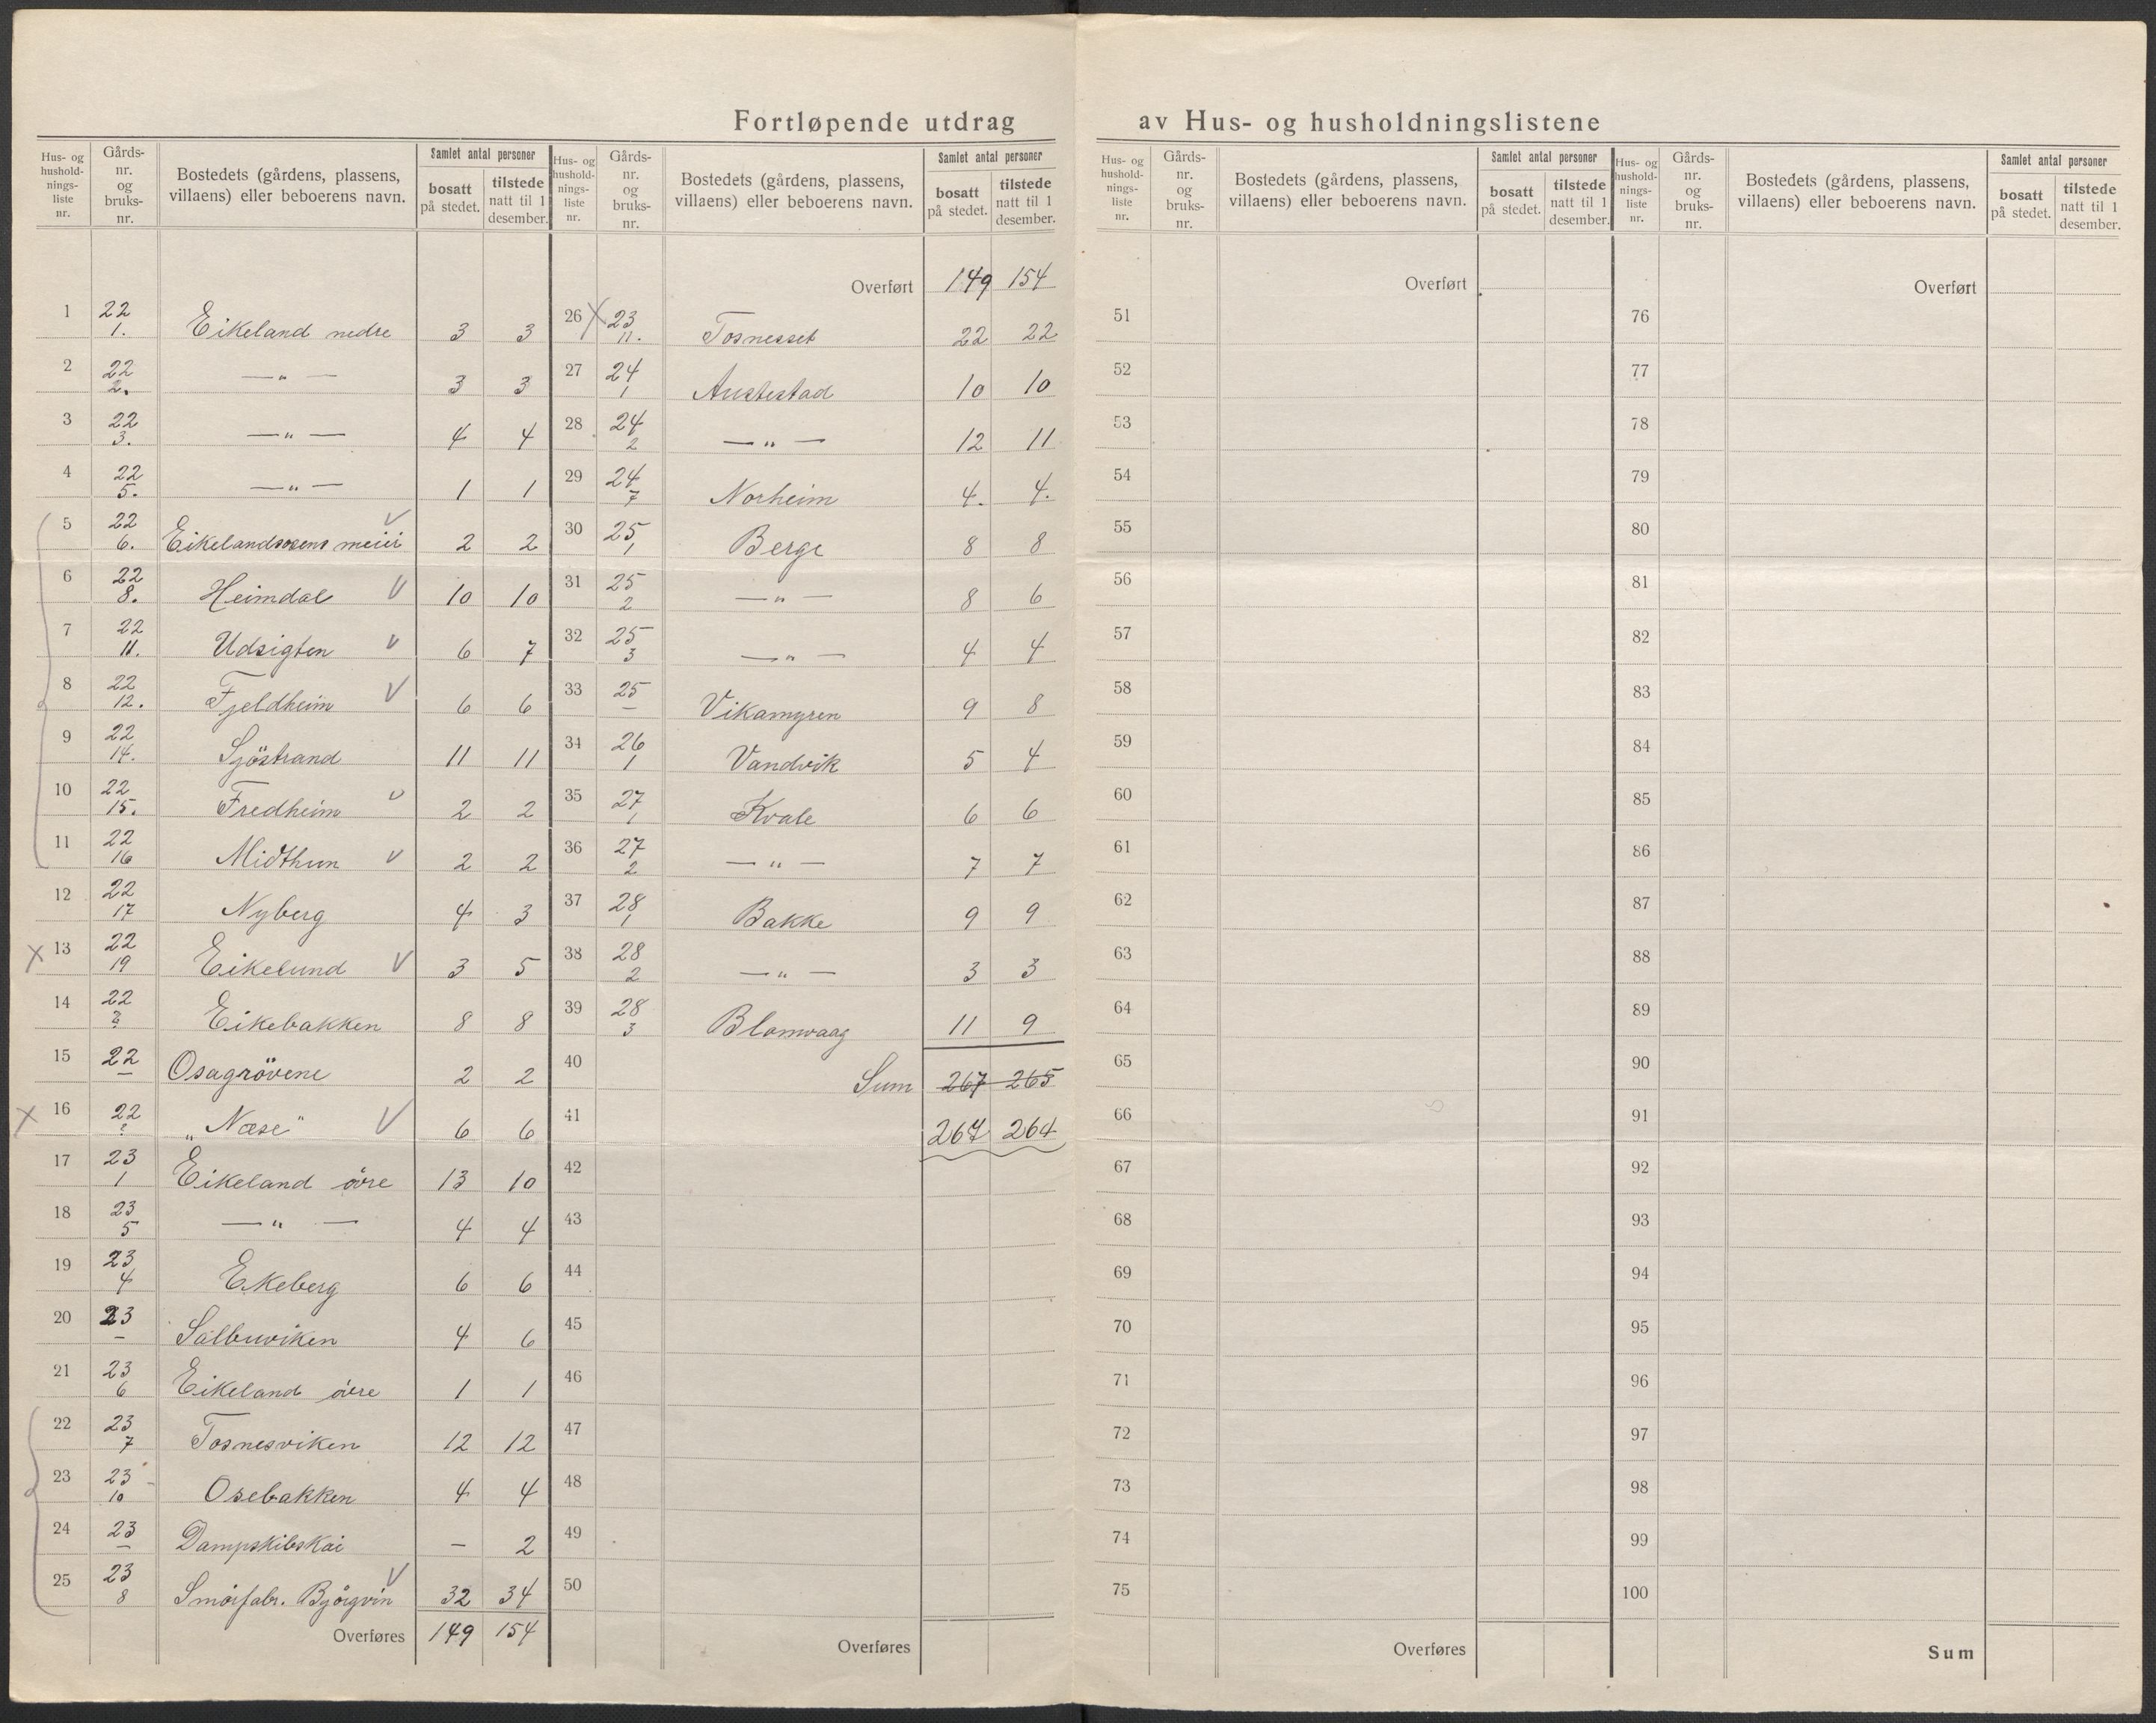 Fortløpende utdrag av Hus- og husholdningslistene
Hus- og husholdnings-liste nr. | Gårds-nr. og bruks-nr. | Bostedets (gårdens, plassens, villaens) eller beboerens navn. | Samlet antal personer | bosatt på stedet. | tilstede natt til 1 desember.
1 | 22 1. | Eikeland nedre | 3 | 3
2 | 22 2. | —„— | 3 | 3
3 | 22 3. | —„— | 4 | 4
4 | 22 5. | —„— | 1 | 1
5 | 22 6. | Eikelandsosens meieri V | 2 | 2
6 | 22 8. | Heimdal V | 10 | 10
7 | 22 11. | Udsigten V | 6 | 7
8 | 22 12. | Fjeldheim V | 6 | 6
9 | 22 14. | Sjöstrand | 11 | 11
10 | 22 15. | Fredheim V | 2 | 2
11 | 22 16 | Midthun V | 2 | 2
12 | 22 17 | Nyberg | 4 | 3
X 13 | 22 19 | Eikelund V | 3 | 5
14 | 22 ? | Eikebakken | 8 | 8
15 | 22 — | Osagrövene | 2 | 2
X 16 | 22 ? | „Næse" V | 6 | 6
17 | 23 1 | Eikeland övre | 13 | 10
18 | 23 5 | —„— | 4 | 4
19 | 23 4 | Ekeberg | 6 | 6
20 | 23 — | Salbuviken | 4 | 6
21 | 23 6 | Eikeland övre | 1 | 1
22 | 23 7 | Tosnesviken | 12 | 12
23 | 23 10 | Osebakken | 4 | 4
24 | 23 — | Dampskibskai | — | 2
25 | 23 8 | Smörfabr. Björgvin V | 32 | 34
Overføres | 149 | 154
Hus- og husholdnings-liste nr. | Gårds-nr. og bruks-nr. | Bostedets (gårdens, plassens, villaens) eller beboerens navn. | Samlet antal personer | bosatt på stedet. | tilstede natt til 1 desember.
Overført | 149 | 154
26 X | 23 11. | Tosnesset | 22 | 22
27 | 24 1 | Austestad | 10 | 10
28 | 24 2 | —„— | 12 | 11
29 | 24 7 | Norheim | 4. | 4.
30 | 25 1 | Berge | 8 | 8
31 | 25 2 | —„— | 8 | 6
32 | 25 3 | —„— | 4 | 4
33 | 25 — | Vikamyren | 9 | 8
34 | 26 1 | Vandvik | 5 | 4
35 | 27 1 | Kvale | 6 | 6
36 | 27 2 | —„— | 7 | 7
37 | 28 1 | Bakke | 9 | 9
38 | 28 2 | —„— | 3 | 3
39 | 28 3 | Blomvaag | 11 | 9
40 | Sum | 267 | 265
41 | 267 | 264
42
43
44
45
46
47
48
49
50
Overføres
Hus- og husholdnings-liste nr. | Gårds-nr. og bruks-nr. | Bostedets (gårdens, plassens, villaens) eller beboerens navn. | Samlet antal personer | bosatt på stedet. | tilstede natt til 1 desember.
Overført
51
52
53
54
55
56
57
58
59
60
61
62
63
64
65
66
67
68
69
70
71
72
73
74
75
Overføres
Hus- og husholdnings-liste nr. | Gårds-nr. og bruks-nr. | Bostedets (gårdens, plassens, villaens) eller beboerens navn. | Samlet antal personer | bosatt på stedet. | tilstede natt til 1 desember.
Overført
76
77
78
79
80
81
82
83
84
85
86
87
88
89
90
91
92
93
94
95
96
97
98
99
100
Sum